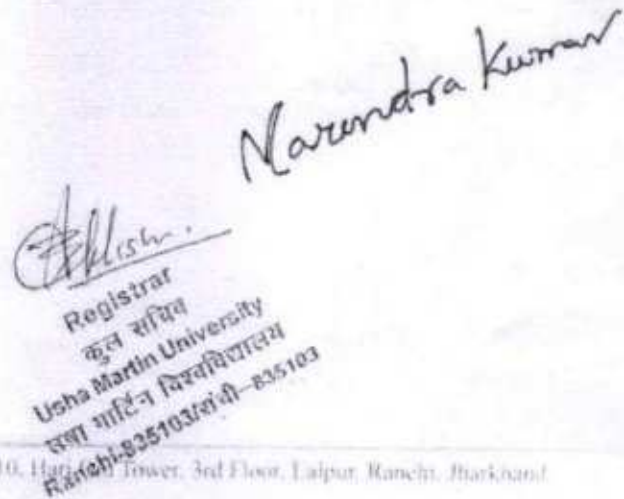 Narendra Kumar
Registrar
कुल सचिव
Usha Martin University
उषा मार्टिन विश्वविद्यालय
Ranchi-835103/रांची-835103
10, Tower, 3rd Floor, Lalpur, Ranchi, Jharkhand